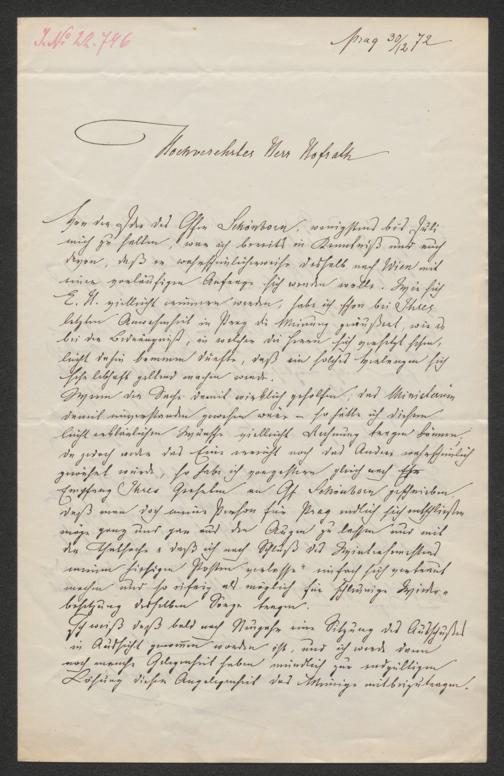 J. No 22.746
Prag 30/12 72
Hochverehrter Herr Hofrath
Von der Idee des Gfen Schönborn, wenigstens bis Juli
mich zu halten, war ich bereits in Kenntniß und auch
davon, daß er wahrscheinlicherweise deshalb nach Wien mit
einer vorläufigen Anfrage sich wenden wolle. Wie sich
E. H. vielleicht erinnern werden, habe ich schon bei Ihrer
letzten Anwesenheit in Prag die Meinung geäußert, wie es
bei der Bedrängniß, in welcher die Herren sich versetzt sehen,
leicht dazu kommen dürfte, daß ein solches Verlangen sich
sehr lebhaft geltend machen werde.
Wenn der Sache damit wirklich geholfen, das Ministerium
damit einverstanden gewesen wäre – so hätte ich diesem
leicht erklärlichen Wunsche vielleicht Rechnung tragen können.
Da jedoch weder das Eine erreicht noch das Andere wahrscheinlich
gewährt würde, so habe ich vorgestern gleich nach
Empfang Ihres Geehrten an Gf Schönborn geschrieben
daß man doch meine Person für Prag endlich sich entschließen
möge ganz und gar aus den Augen zu lassen und mit
der Thatsache, daß ich nach Schluß des Wintersemesters
meinen hiesigen Posten verlasse einfach sich vertraut
machen und so eifrig als möglich für schleunige Wieder-
besetzung desselben Sorge tragen.
Ich weiß daß bald nach Neujahr eine Sitzung des Ausschußes
in Aussicht genommen worden ist, und ich werde dann
noch manche Gelegenheit haben mündlich zur endgültigen
Lösung dieser Angelegenheit das Meinige mitbeizutragen.